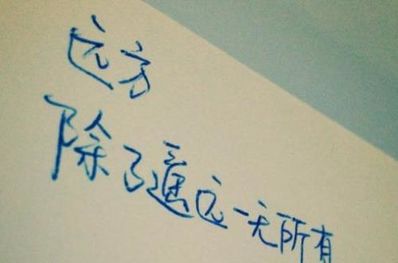 远方
除了遥远一无所有